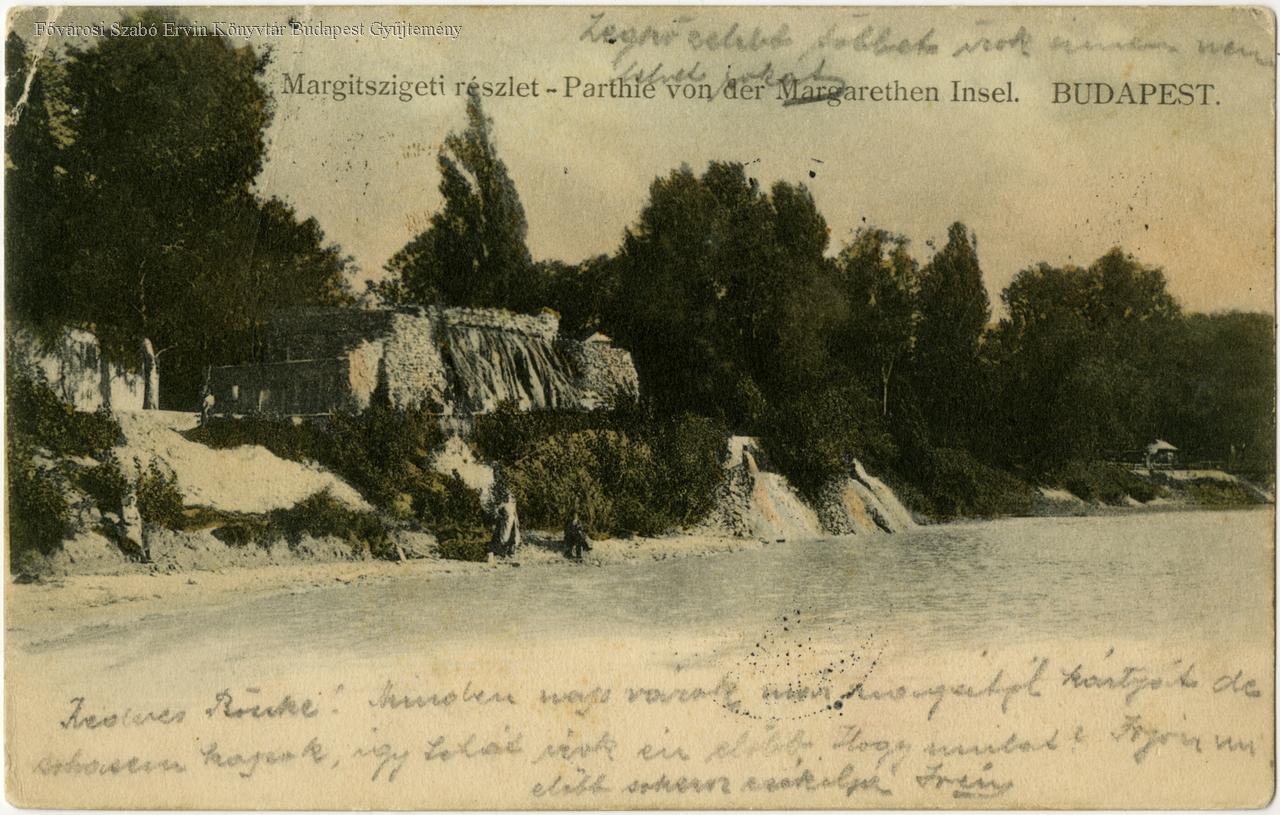 Fővárosi Szabó Ervin Könyvtár Budapest Gyűjtemény
Legközelebb többet írok ennem nem
lehet sokat
Margitszigeti részlet - Parthie von der Margarethen Insel. BUDAPEST.
Kedves Rözike! Minden nap várok már magától kártyát de
sohasem kapok, így tehát írok én előbb. Hogy mulat? Írjon mi
előbb sokszor csókolja Irén